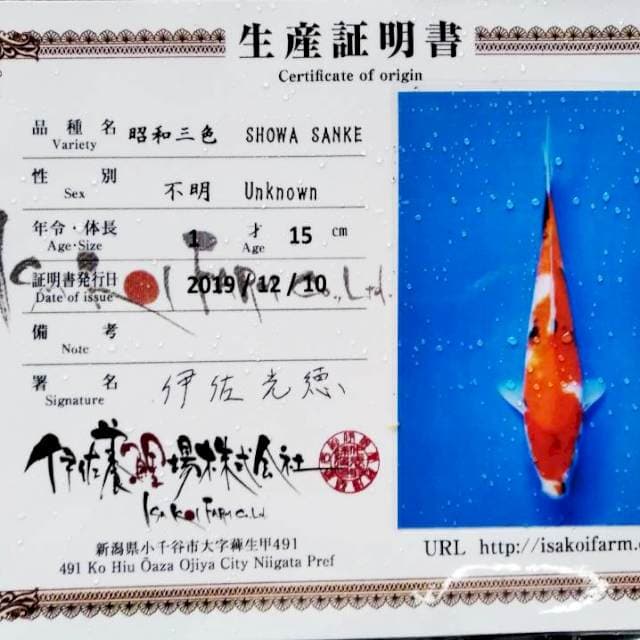 生産証明書
Certificate of origin
品種名 昭和三色 SHOWA SANKE
Variety
性別 不明 Unknown
Sex
年令・体長 1 才 15 cm
Age・Size Age
証明書発行日 2019/12/10
Date of issue
備考
Note
署名 伊佐光徳
Signature
Isa Koi Farm Co., Ltd.
伊佐養鯉場株式会社
Isa Koi Farm Co. Ltd
新潟県小千谷市大字薭生甲491
491 Ko Hiu Ōaza Ojiya City Niigata Pref
URL http://isakoifarm.